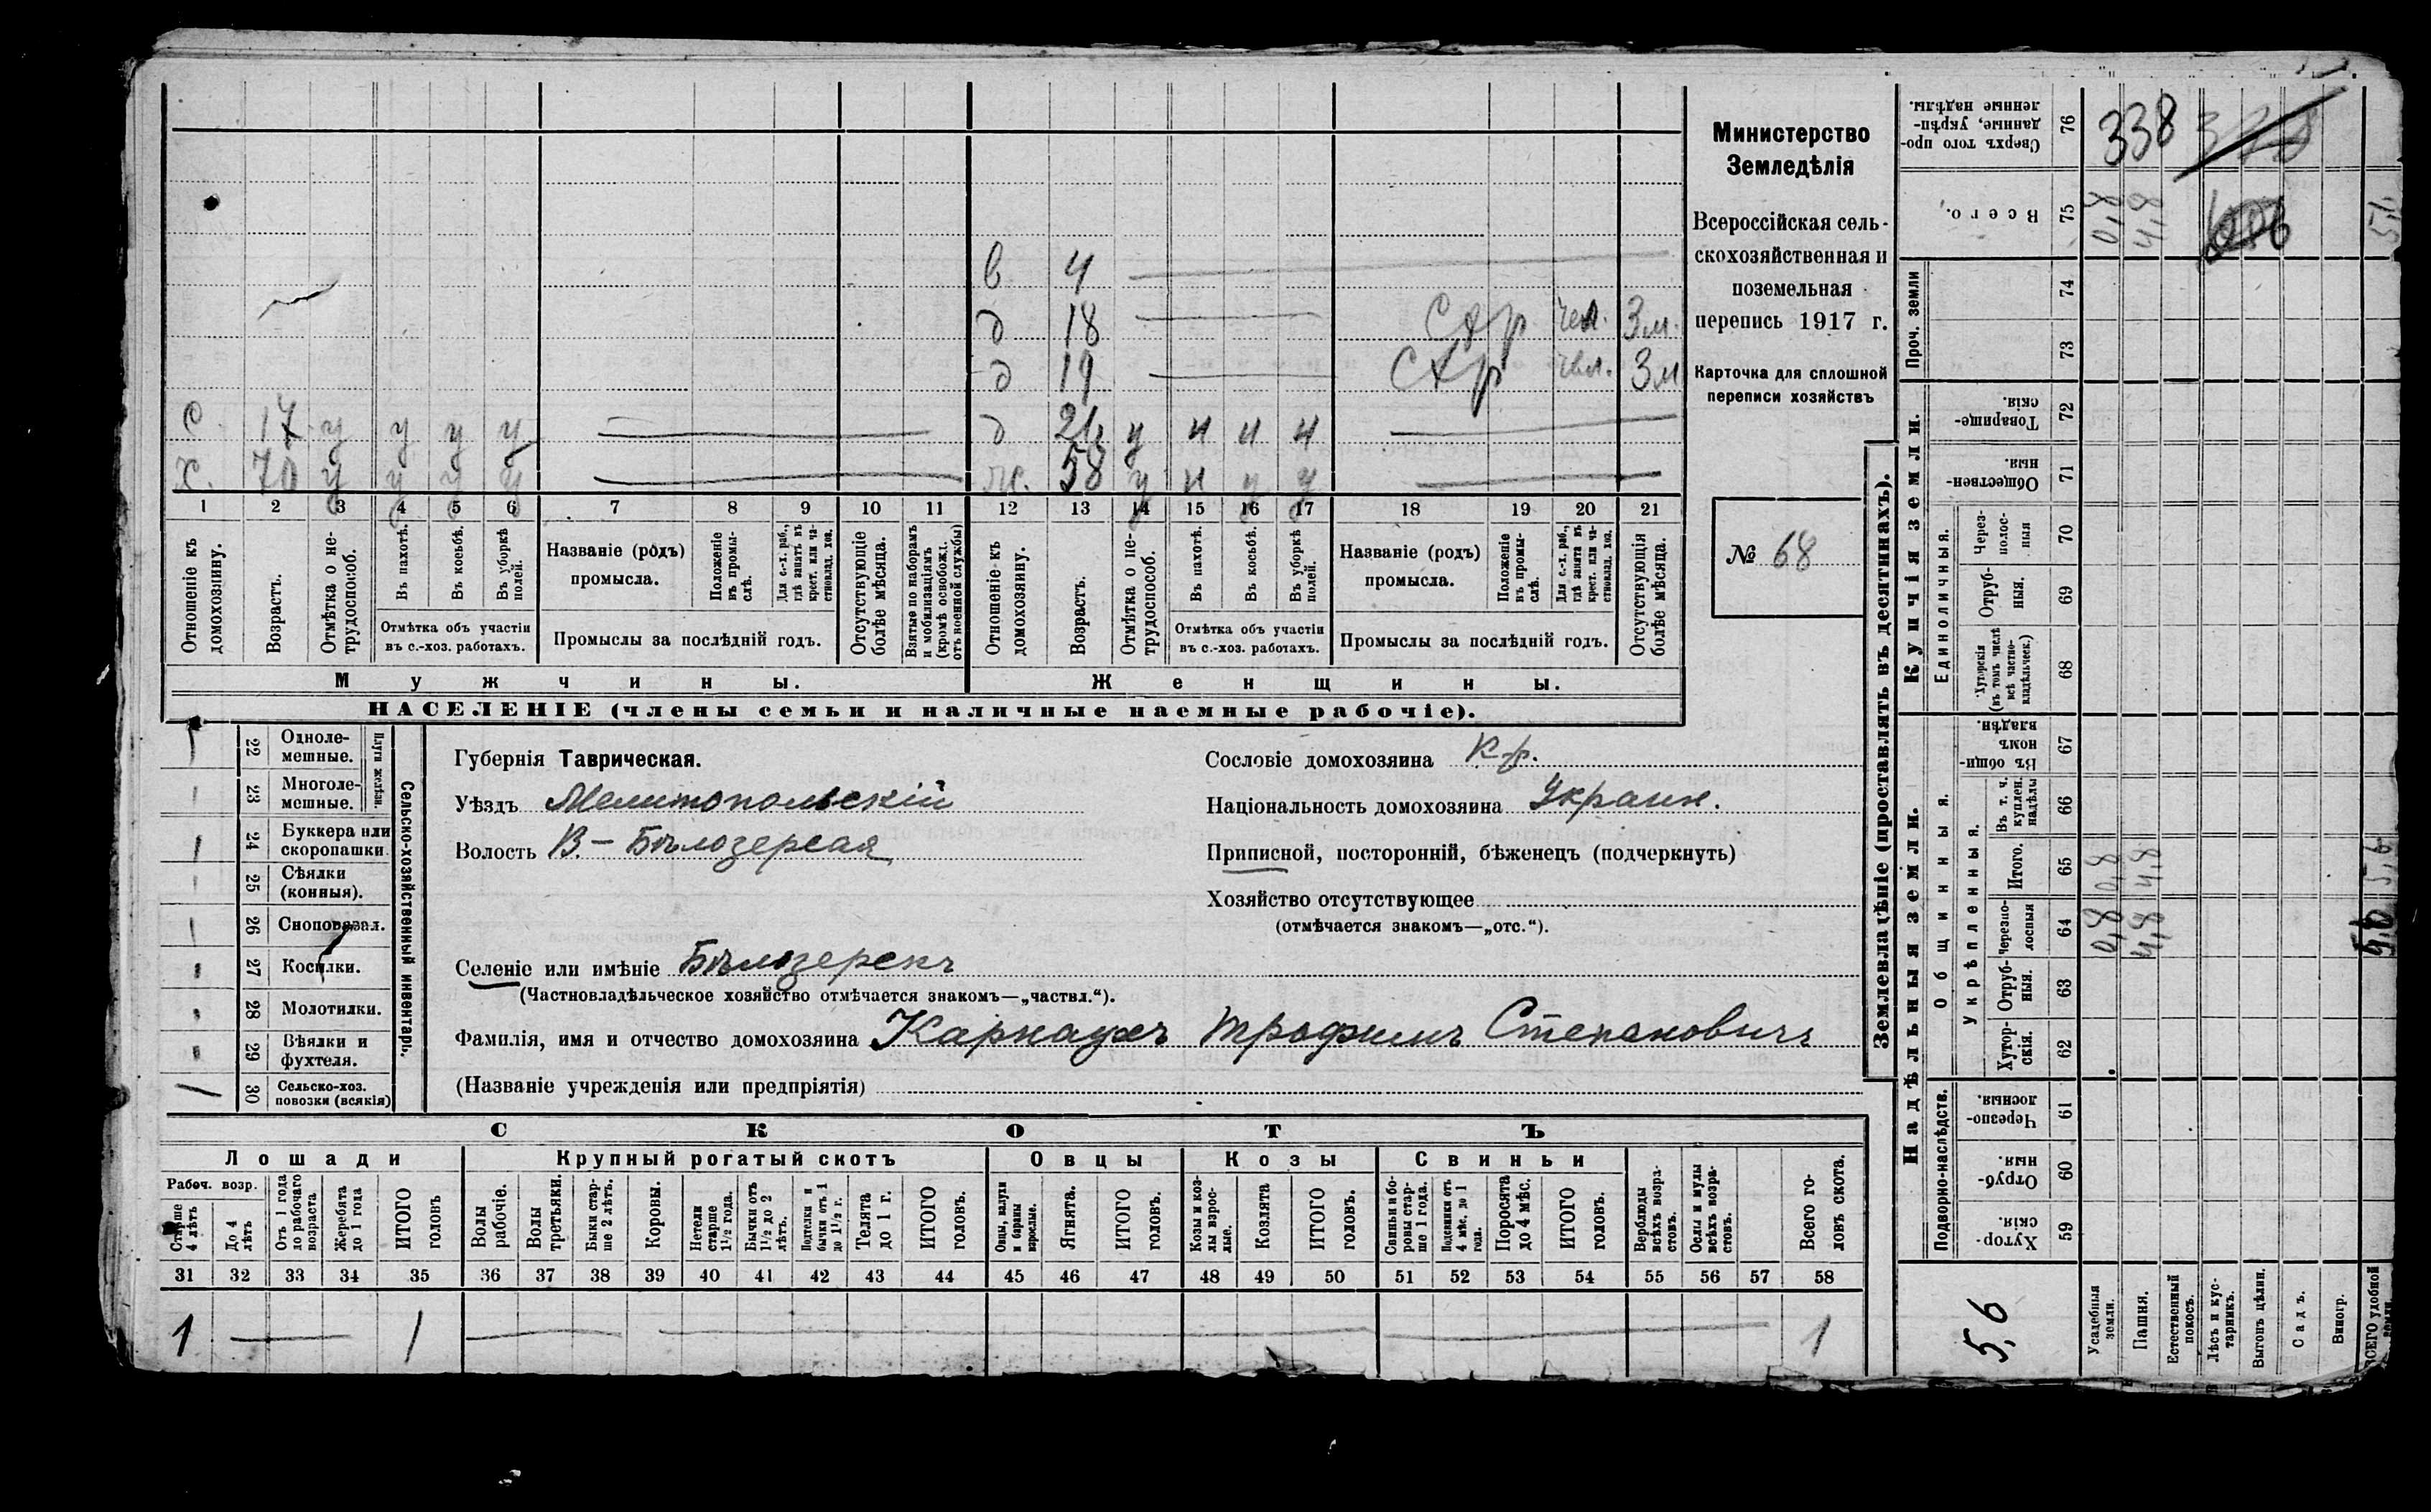 в 4
д 18 Схр 3м.
д 19 Схр 3м
с 17 у у у у д 21 у н н н
х. 70 у у у у ж. 58 у н у у
1 2 3 4 5 6 7 8 9 10 11 12 13 14 15 16 17 18 19 20 21
Отношеніе къ домохозяину.
Возрастъ.
Отмѣтка о нетрудоспособ.
Въ пахотѣ.
Въ косьбѣ.
Въ уборкѣ полей.
Отмѣтка объ участіи въ с.-хоз. работахъ.
Названіе (родъ) промысла.
Положеніе въ промыслѣ.
Для с.-х. раб., гдѣ занятъ въ крест. или частновлад. хоз.
Промыслы за послѣдній годъ.
Отсутствующіе болѣе мѣсяца.
Взятые по наборамъ и мобилизаціямъ (кромѣ освобожд. отъ военной службы)
Отношеніе къ домохозяину.
Возрастъ.
Отмѣтка о нетрудоспособ.
Въ пахотѣ.
Въ косьбѣ.
Въ уборкѣ полей.
Отмѣтка объ участіи въ с.-хоз. работахъ.
Названіе (родъ) промысла.
Положеніе въ промыслѣ.
Для с.-х. раб., гдѣ занята въ крест. или частновлад. хоз.
Промыслы за послѣдній годъ.
Отсутствующія болѣе мѣсяца.
Мужчины.
Женщины.
НАСЕЛЕНІЕ (члены семьи и наличные наемные рабочіе).
Министерство
Земледѣлія
Всероссійская сель-
скохозяйственная и
поземельная
перепись 1917 г.
Карточка для сплошной
переписи хозяйствъ
№ 68
22 Одноле-мешные.
23 Многоле-мешные.
Плуги желѣзн.
24 Буккера или скоропашки.
25 Сѣялки (конныя).
26 Сноповязал.
27 Косилки.
28 Молотилки.
29 Вѣялки и фухтеля.
30 Сельско-хоз. повозки (всякія)
1
Сельско-хозяйственный инвентарь.
Губернія Таврическая.
Уѣздъ Мелитопольскій
Волость В.-Бѣлозерская
Сословіе домохозяина Кр.
Національность домохозяина Украин.
Приписной, посторонній, бѣженецъ (подчеркнуть)
Хозяйство отсутствующее
(отмѣчается знакомъ—„отс.“).
Селеніе или имѣніе Бѣлозерскъ
(Частновладѣльческое хозяйство отмѣчается знакомъ—„частвл.“).
Фамилія, имя и отчество домохозяина Карнаухъ Трофимъ Степановичъ
(Названіе учрежденія или предпріятія)
СКОТЪ
Лошади
Крупный рогатый скотъ
Овцы
Козы
Свиньи
Рабоч. возр.
Старше 4 лѣтъ
До 4 лѣтъ
Отъ 1 года до рабочаго возраста
Жеребята до 1 года
ИТОГО головъ
Волы рабочіе.
Волы третьяки.
Быки старше 2 лѣтъ.
Коровы.
Нетели старше 1½ года.
Бычки отъ 1½ до 2 лѣтъ.
Подтелки и бычки отъ 1 до 1½ г.
Телята до 1 г.
ИТОГО головъ.
Овцы, валухи и бараны взрослые.
Ягнята.
ИТОГО головъ.
Козы и козлы взрослые.
Козлята
ИТОГО головъ.
Свиньи и боровы старше 1 года.
Подсвинки отъ 4 мѣс. до 1 года.
Поросята до 4 мѣс.
ИТОГО головъ.
Верблюды всѣхъ возрастовъ.
Ослы и мулы всѣхъ возрастовъ.
Всего головъ скота.
31 32 33 34 35 36 37 38 39 40 41 42 43 44 45 46 47 48 49 50 51 52 53 54 55 56 57 58
1 1 1
Землевладѣніе (проставлять въ десятинахъ).
Купчія земли.
Надѣльныя земли.
Сверхъ того проданные, укрѣпленные надѣлы. 76 338
Всего. 75 0,8 4,8
Проч. земли
74
73
Товарищескія. 72
Общественныя. 71
Единоличныя.
Черезполосныя 70
Отрубныя. 69
Хуторскія (въ томъ числѣ всѣ частновладѣльческ.) 68
Общинныя.
Въ общинномъ владѣн. 67
Укрѣпленныя.
Въ т. ч. куплен. надѣлы 66
Итого. 65 0,8 4,8 5,6
Черезполосныя 64 0,8 4,8 5,6
Отрубныя. 63
Хуторскія. 62
Подворно-наслѣдств.
Черезполосныя. 61
Отрубныя. 60
Хуторскія. 59
5,6
Усадебныя земли.
Пашня.
Естественный покосъ.
Лѣсъ и кустарникъ.
Выгонъ цѣлин.
Садъ.
Виногр.
ВСЕГО удобной земли